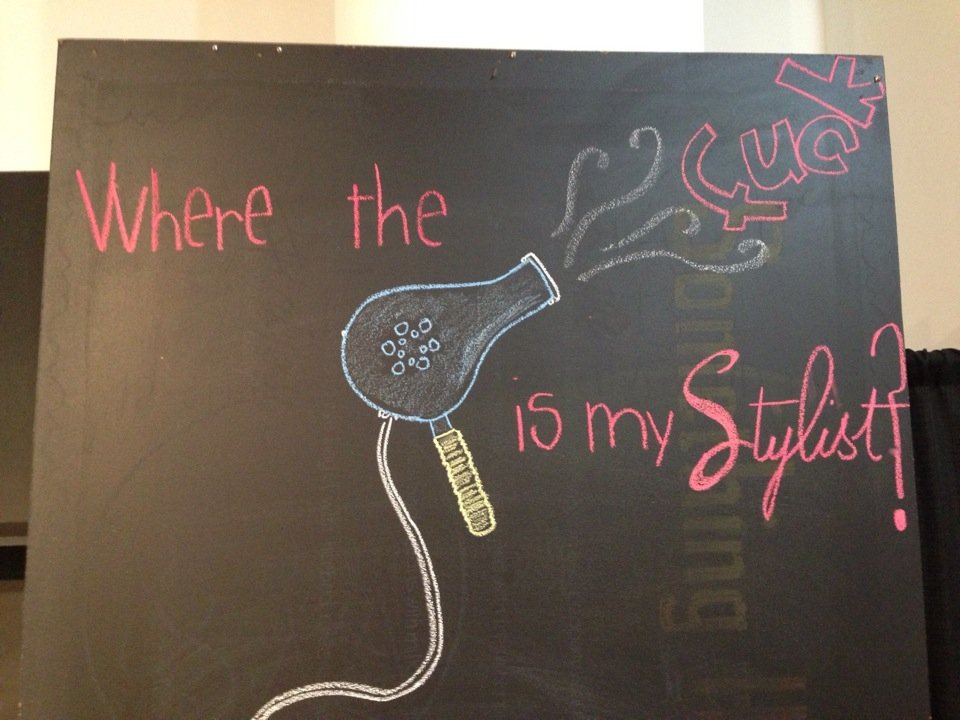 Where the fuck
is my Stylist?